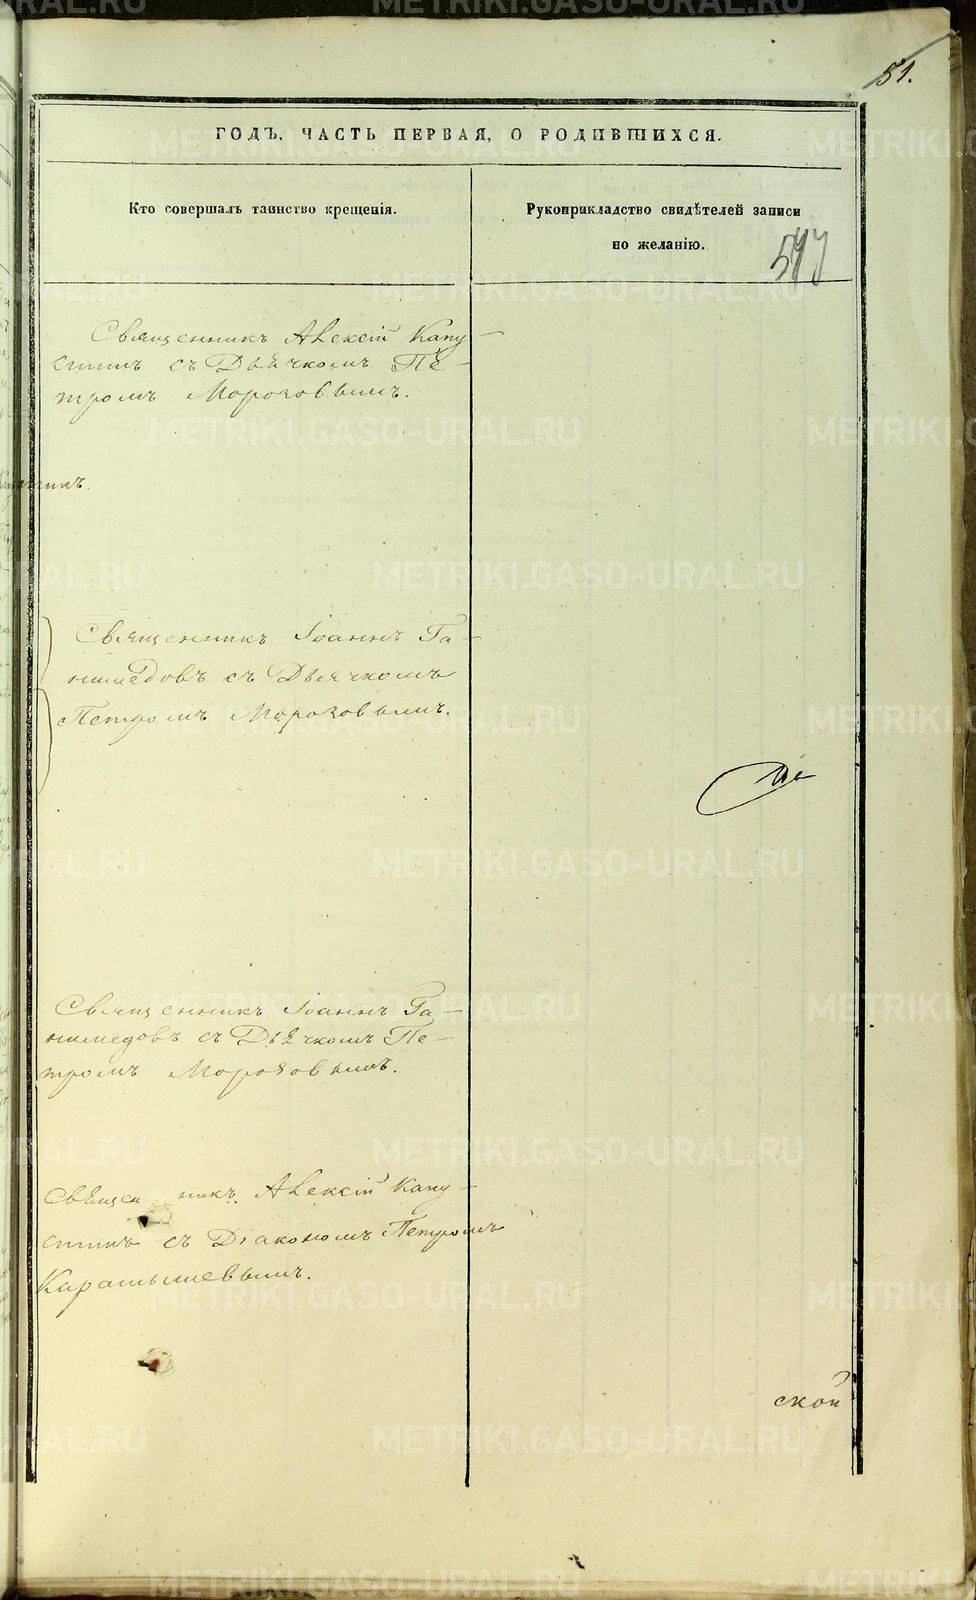 51.
ГОДЪ, ЧАСТЬ ПЕРВАЯ, О РОДИВШИХСЯ.
Кто совершалъ таинство крещенія.
Рукоприкладство свидѣтелей записи
по желанію.
Священникъ Алексій Капу-
стинъ съ Дьячкомъ Пе-
тромъ Морозовымъ.
Священникъ Іоаннъ Га-
нимедовъ съ Дьячкомъ
Петромъ Морозовымъ.
Священникъ Іоаннъ Га-
нимедовъ съ Дьячкомъ Пе-
тромъ Морозовымъ.
Священникъ Алексій Капу-
стинъ съ Діакономъ Петромъ
Каратышевымъ.
ской
METRIKI.GASO-URAL.RU